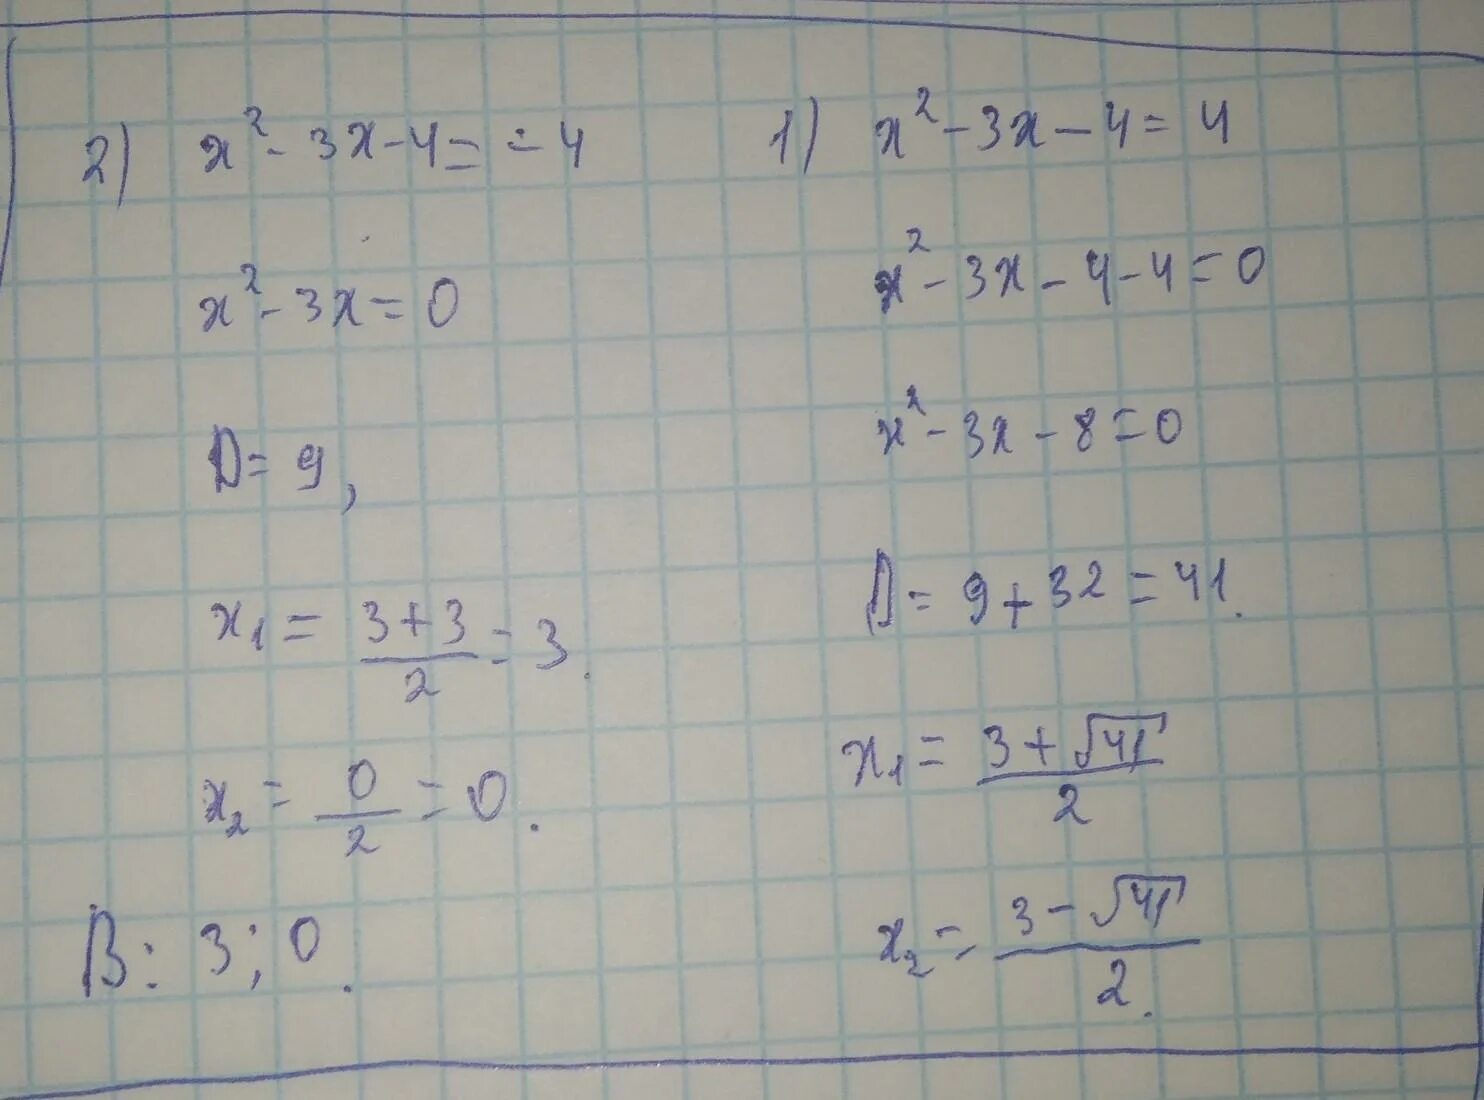 2) x² - 3x - 4 = -4
x² - 3x = 0
D = 9,
x₁ = (3 + 3)/2 = 3.
x₂ = 0/2 = 0.
В: 3; 0.
1) x² - 3x - 4 = 4
x² - 3x - 4 - 4 = 0
x² - 3x - 8 = 0
D = 9 + 32 = 41.
x₁ = (3 + √41)/2
x₂ = (3 - √41)/2.